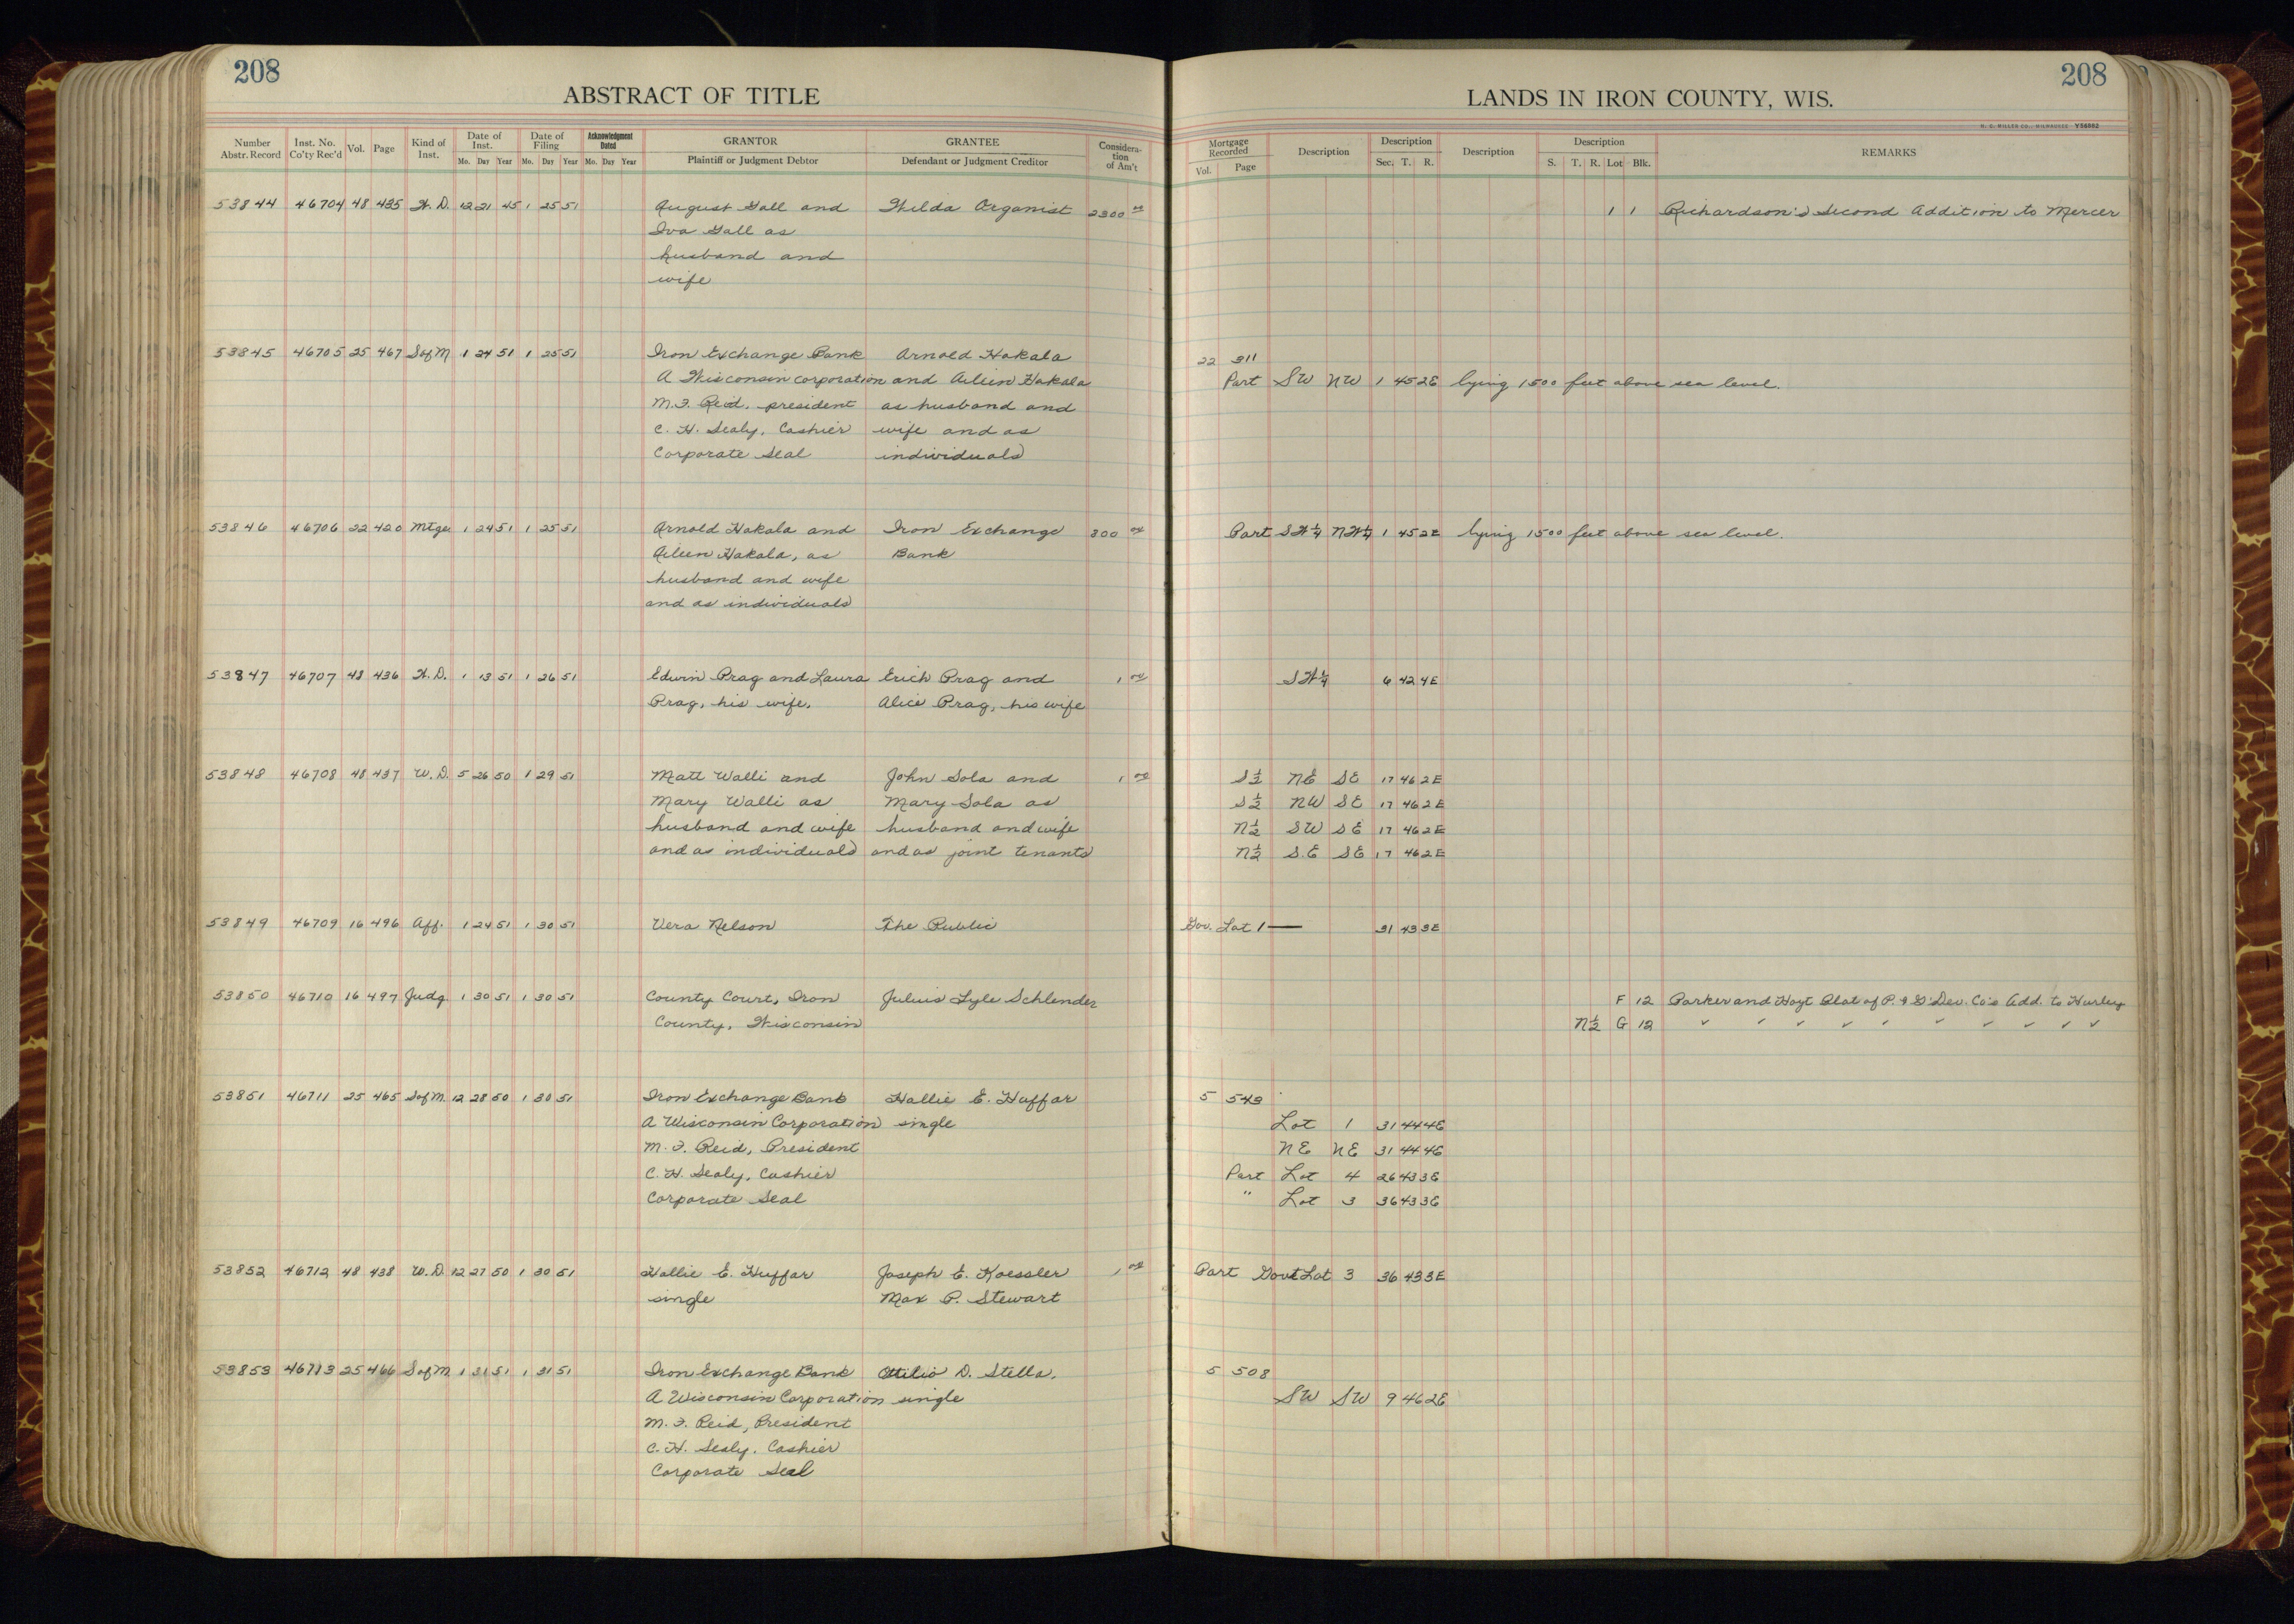 208
ABSTRACT OF TITLE
Number Abstr. Record | Inst. No. Co'ty Rec'd | Vol. | Page | Kind of Inst. | Date of Inst. Mo. Day Year | Date of Filing Mo. Day Year | Acknowledgment Dated Mo. Day Year | GRANTOR Plaintiff or Judgment Debtor | GRANTEE Defendant or Judgment Creditor | Consideration of Am't
53844 46704 48 435 W. D. 12 21 45 1 25 51 August Gall and Hilda Organist 2300 00
Iva Gall as
husband and
wife
53845 46705 25 467 S of M 1 24 51 1 25 51 Iron Exchange Bank Arnold Hakala
A Wisconsin corporation and Aileen Hakala
M. F. Reid, president as husband and
C. H. Sealy, Cashier wife and as
Corporate Seal individuals
53846 46706 22 420 Mtge 1 24 51 1 25 51 Arnold Hakala and Iron Exchange 800 00
Aileen Hakala, as Bank
husband and wife
and as individuals
53847 46707 48 436 W. D. 1 13 51 1 26 51 Edwin Prag and Laura Erich Prag and 1 00
Prag, his wife. Alice Prag, his wife
53848 46708 48 437 W. D. 5 26 50 1 29 51 Matt Walli and John Sola and 1 00
Mary Walli as Mary Sola as
husband and wife husband and wife
and as individuals and as joint tenants
53849 46709 16 496 Aff. 1 24 51 1 30 51 Vera Nelson The Public
53850 46710 16 497 Judg. 1 30 51 1 30 51 County Court, Iron Julius Lyle Schlender
County, Wisconsin
53851 46711 25 465 S of M. 12 28 50 1 30 51 Iron Exchange Bank Hallie E. Huffar
A Wisconsin Corporation single
M. F. Reid, President
C. H. Sealy, Cashier
Corporate Seal
53852 46712 48 438 W. D. 12 27 50 1 30 51 Hallie E. Huffar Joseph E. Koessler 1 00
single Max P. Stewart
53853 46713 25 466 S of M. 1 31 51 1 31 51 Iron Exchange Bank Ottilio D. Stella,
A Wisconsin Corporation single
M. F. Reid, President
C. H. Sealy, Cashier
Corporate Seal
208
LANDS IN IRON COUNTY, WIS.
H. C. MILLER CO., MILWAUKEE Y56862
Mortgage Recorded Vol. Page | Description | Description Sec. T. R. | Description | Description S. T. R. Lot Blk. | REMARKS
1 1 Richardson's Second Addition to Mercer
22 311
Part SW NW 1 45 2E lying 1500 feet above sea level.
Part SW¼ NW¼ 1 45 2E lying 1500 feet above sea level.
SW¼ 6 42 4E
S½ NE SE 17 46 2E
S½ NW SE 17 46 2E
N½ SW SE 17 46 2E
N½ S.E SE 17 46 2E
Gov. Lot 1 — 31 43 3E
F 12 Parker and Hoyt Plat of P. & G. Dev. Co's Add. to Hurley
N½ G 12 ✓ ✓ ✓ ✓ ✓ ✓ ✓ ✓ ✓ ✓
5 543
Lot 1 31 44 4E
NE NE 31 44 4E
Part Lot 4 26 43 3E
" Lot 3 36 43 3E
Part Govt Lot 3 36 43 3E
5 508
SW SW 9 46 2E